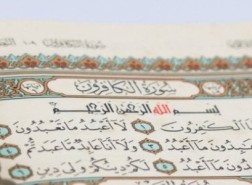 سُورَةُ الْكَافِرُونَ
بِسْمِ اللَّهِ الرَّحْمَٰنِ الرَّحِيمِ
الْكَٰفِرُونَ ۝ لَا أَعْبُدُ مَا تَعْبُدُونَ ۝
مَا أَعْبُدُ ۝ وَلَا أَنَا عَابِدٌ مَّا عَبَدتُّمْ
مَا أَعْبُدُ ۝ لَكُمْ دِينُكُمْ وَلِيَ دِينِ